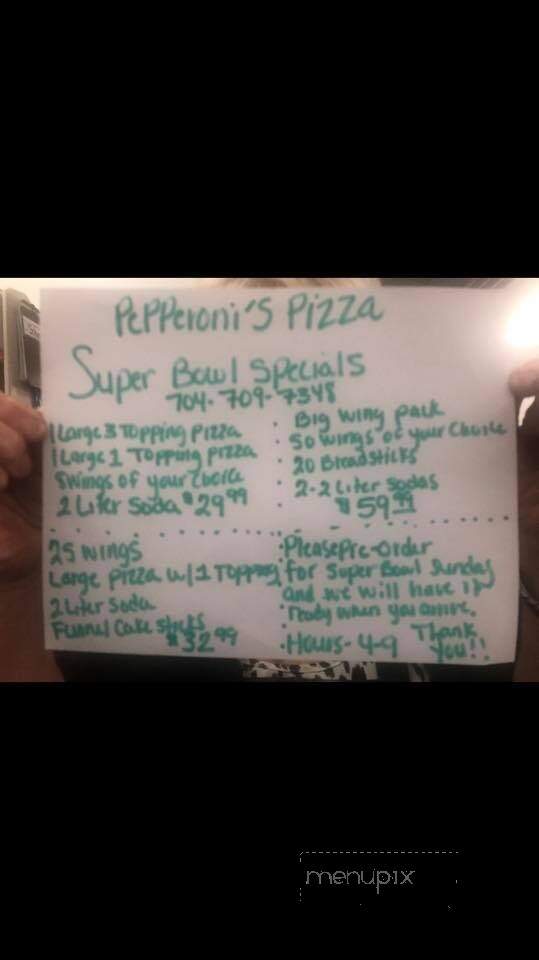 PePPeroni's Pizza
Super Bowl Specials
704-709-7348
1 Large 3 Topping Pizza
1 Large 1 Topping Pizza
8 wings of your Choice
2 Liter Soda $29.99
Big wing pack
50 wings of your Choice
20 Breadsticks
2-2 Liter Sodas
$59.99
25 wings
Large pizza w/1 Topping
2 Liter Soda
Funnel Cake Sticks
$32.99
Please pre-order
for Super Bowl Sunday
and we will have it
ready when you arrive.
Hours-4-9 Thank
You!!
menupix